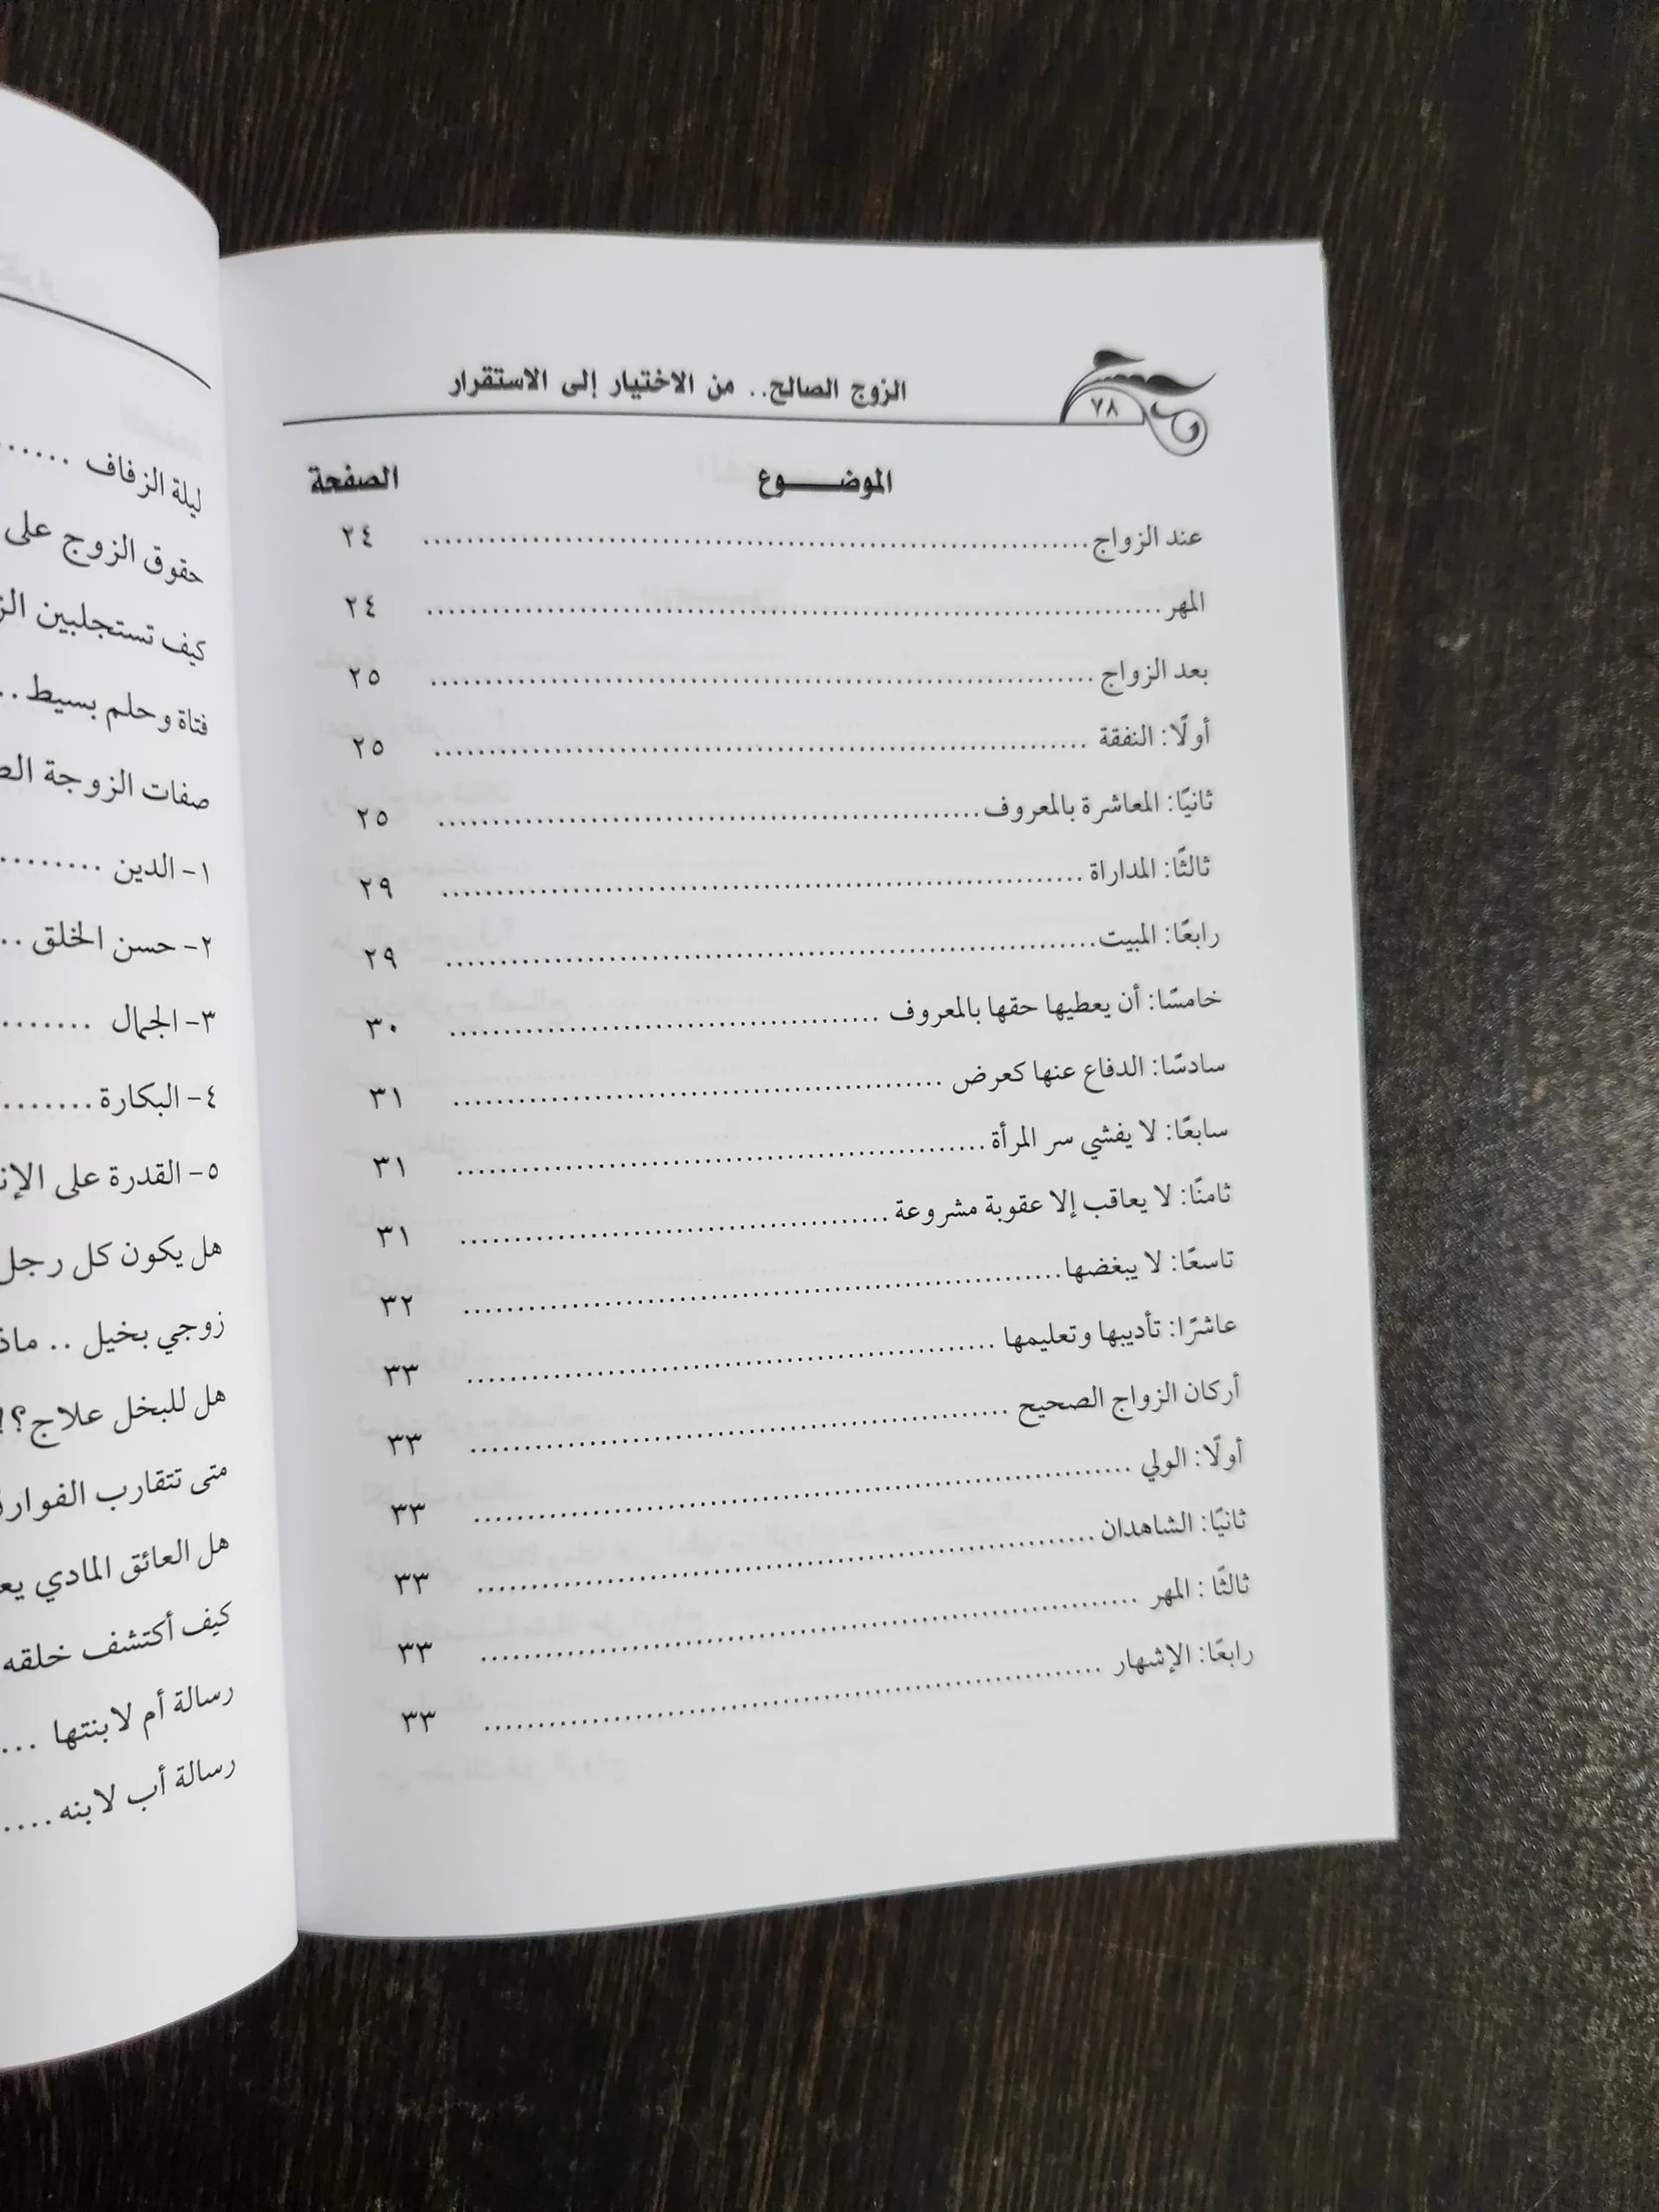 الزوج الصالح.. من الاختيار إلى الاستقرار
٧٨
الموضـــــوع الصفحة
عند الزواج ........ ٢٤
المهر ........ ٢٤
بعد الزواج ........ ٢٥
أولًا: النفقة ........ ٢٥
ثانيًا: المعاشرة بالمعروف ........ ٢٥
ثالثًا: المداراة ........ ٢٩
رابعًا: المبيت ........ ٢٩
خامسًا: أن يعطيها حقها بالمعروف ........ ٣٠
سادسًا: الدفاع عنها كعرض ........ ٣١
سابعًا: لا يفشي سر المرأة ........ ٣١
ثامنًا: لا يعاقب إلا عقوبة مشروعة ........ ٣١
تاسعًا: لا يبغضها ........ ٣٢
عاشرًا: تأديبها وتعليمها ........ ٣٣
أركان الزواج الصحيح ........ ٣٣
أولًا: الولي ........ ٣٣
ثانيًا: الشاهدان ........ ٣٣
ثالثًا : المهر ........ ٣٣
رابعًا: الإشهار ........ ٣٣
ليلة الزفاف ......
حقوق الزوج على
كيف تستجلبين
فتاة وحلم بسيط ..
صفات الزوجة
١- الدين ........
٢- حسن الخلق ..
٣- الجمال .......
٤- البكارة ........
٥- القدرة على
هل يكون كل رجل
زوجي بخيل ..
هل للبخل علاج؟!
متى تتقارب
هل العائق المادي
كيف أكتشف خلقه
رسالة أم لابنتها ...
رسالة أب لابنه ....